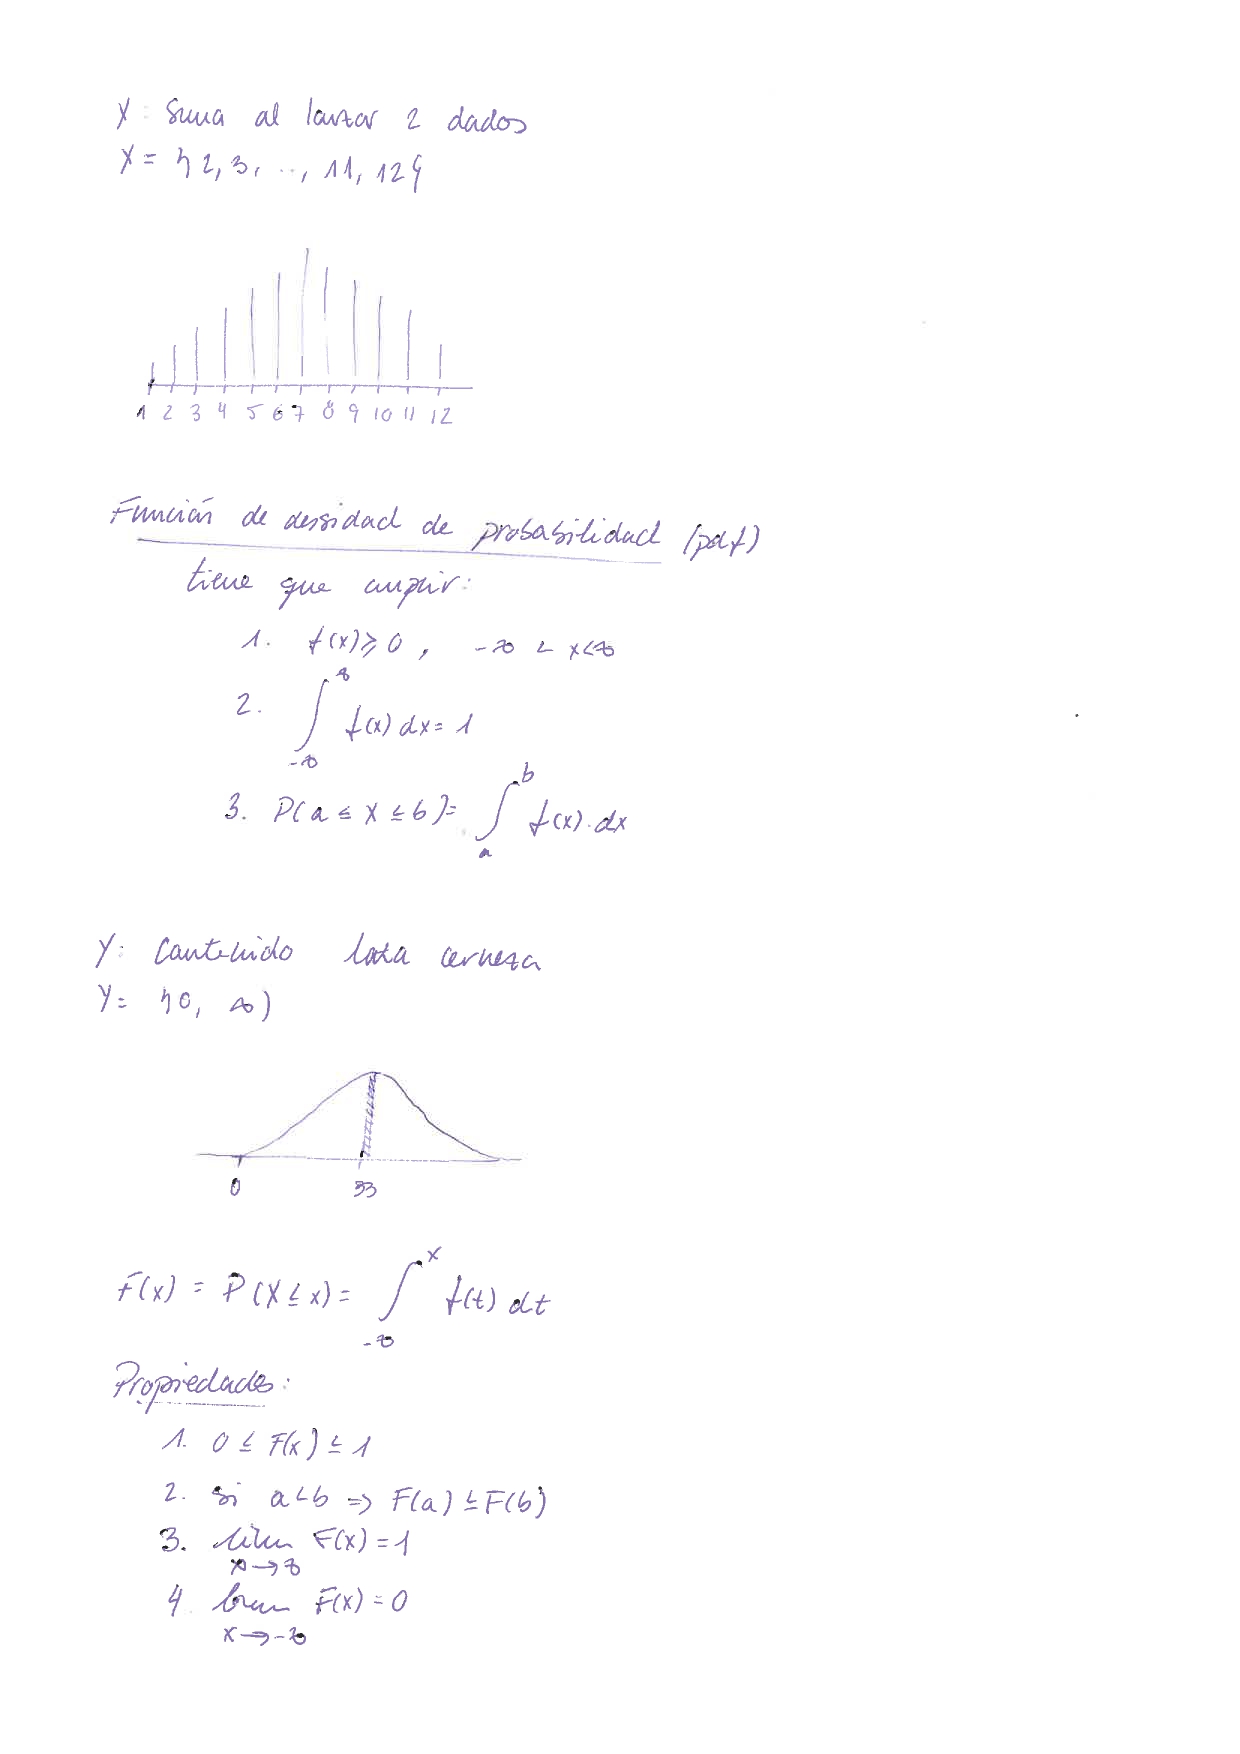 X: Suma al lanzar 2 dados
X = {2, 3, ..., 11, 12}
1 2 3 4 5 6 7 8 9 10 11 12
Función de densidad de probabilidad (pdf)
tiene que cumplir:
1. f(x) ≥ 0 , -∞ < x < ∞
2. ∫_{-∞}^{∞} f(x) dx = 1
3. P(a ≤ X ≤ b) = ∫_{a}^{b} f(x) · dx
Y: Contenido lata cerveza
Y = {0, ∞)
0 33
F(x) = P(X ≤ x) = ∫_{-∞}^{x} f(t) dt
Propiedades:
1. 0 ≤ F(x) ≤ 1
2. si a < b => F(a) ≤ F(b)
3. lim F(x) = 1
x → ∞
4. lim F(x) = 0
x → -∞